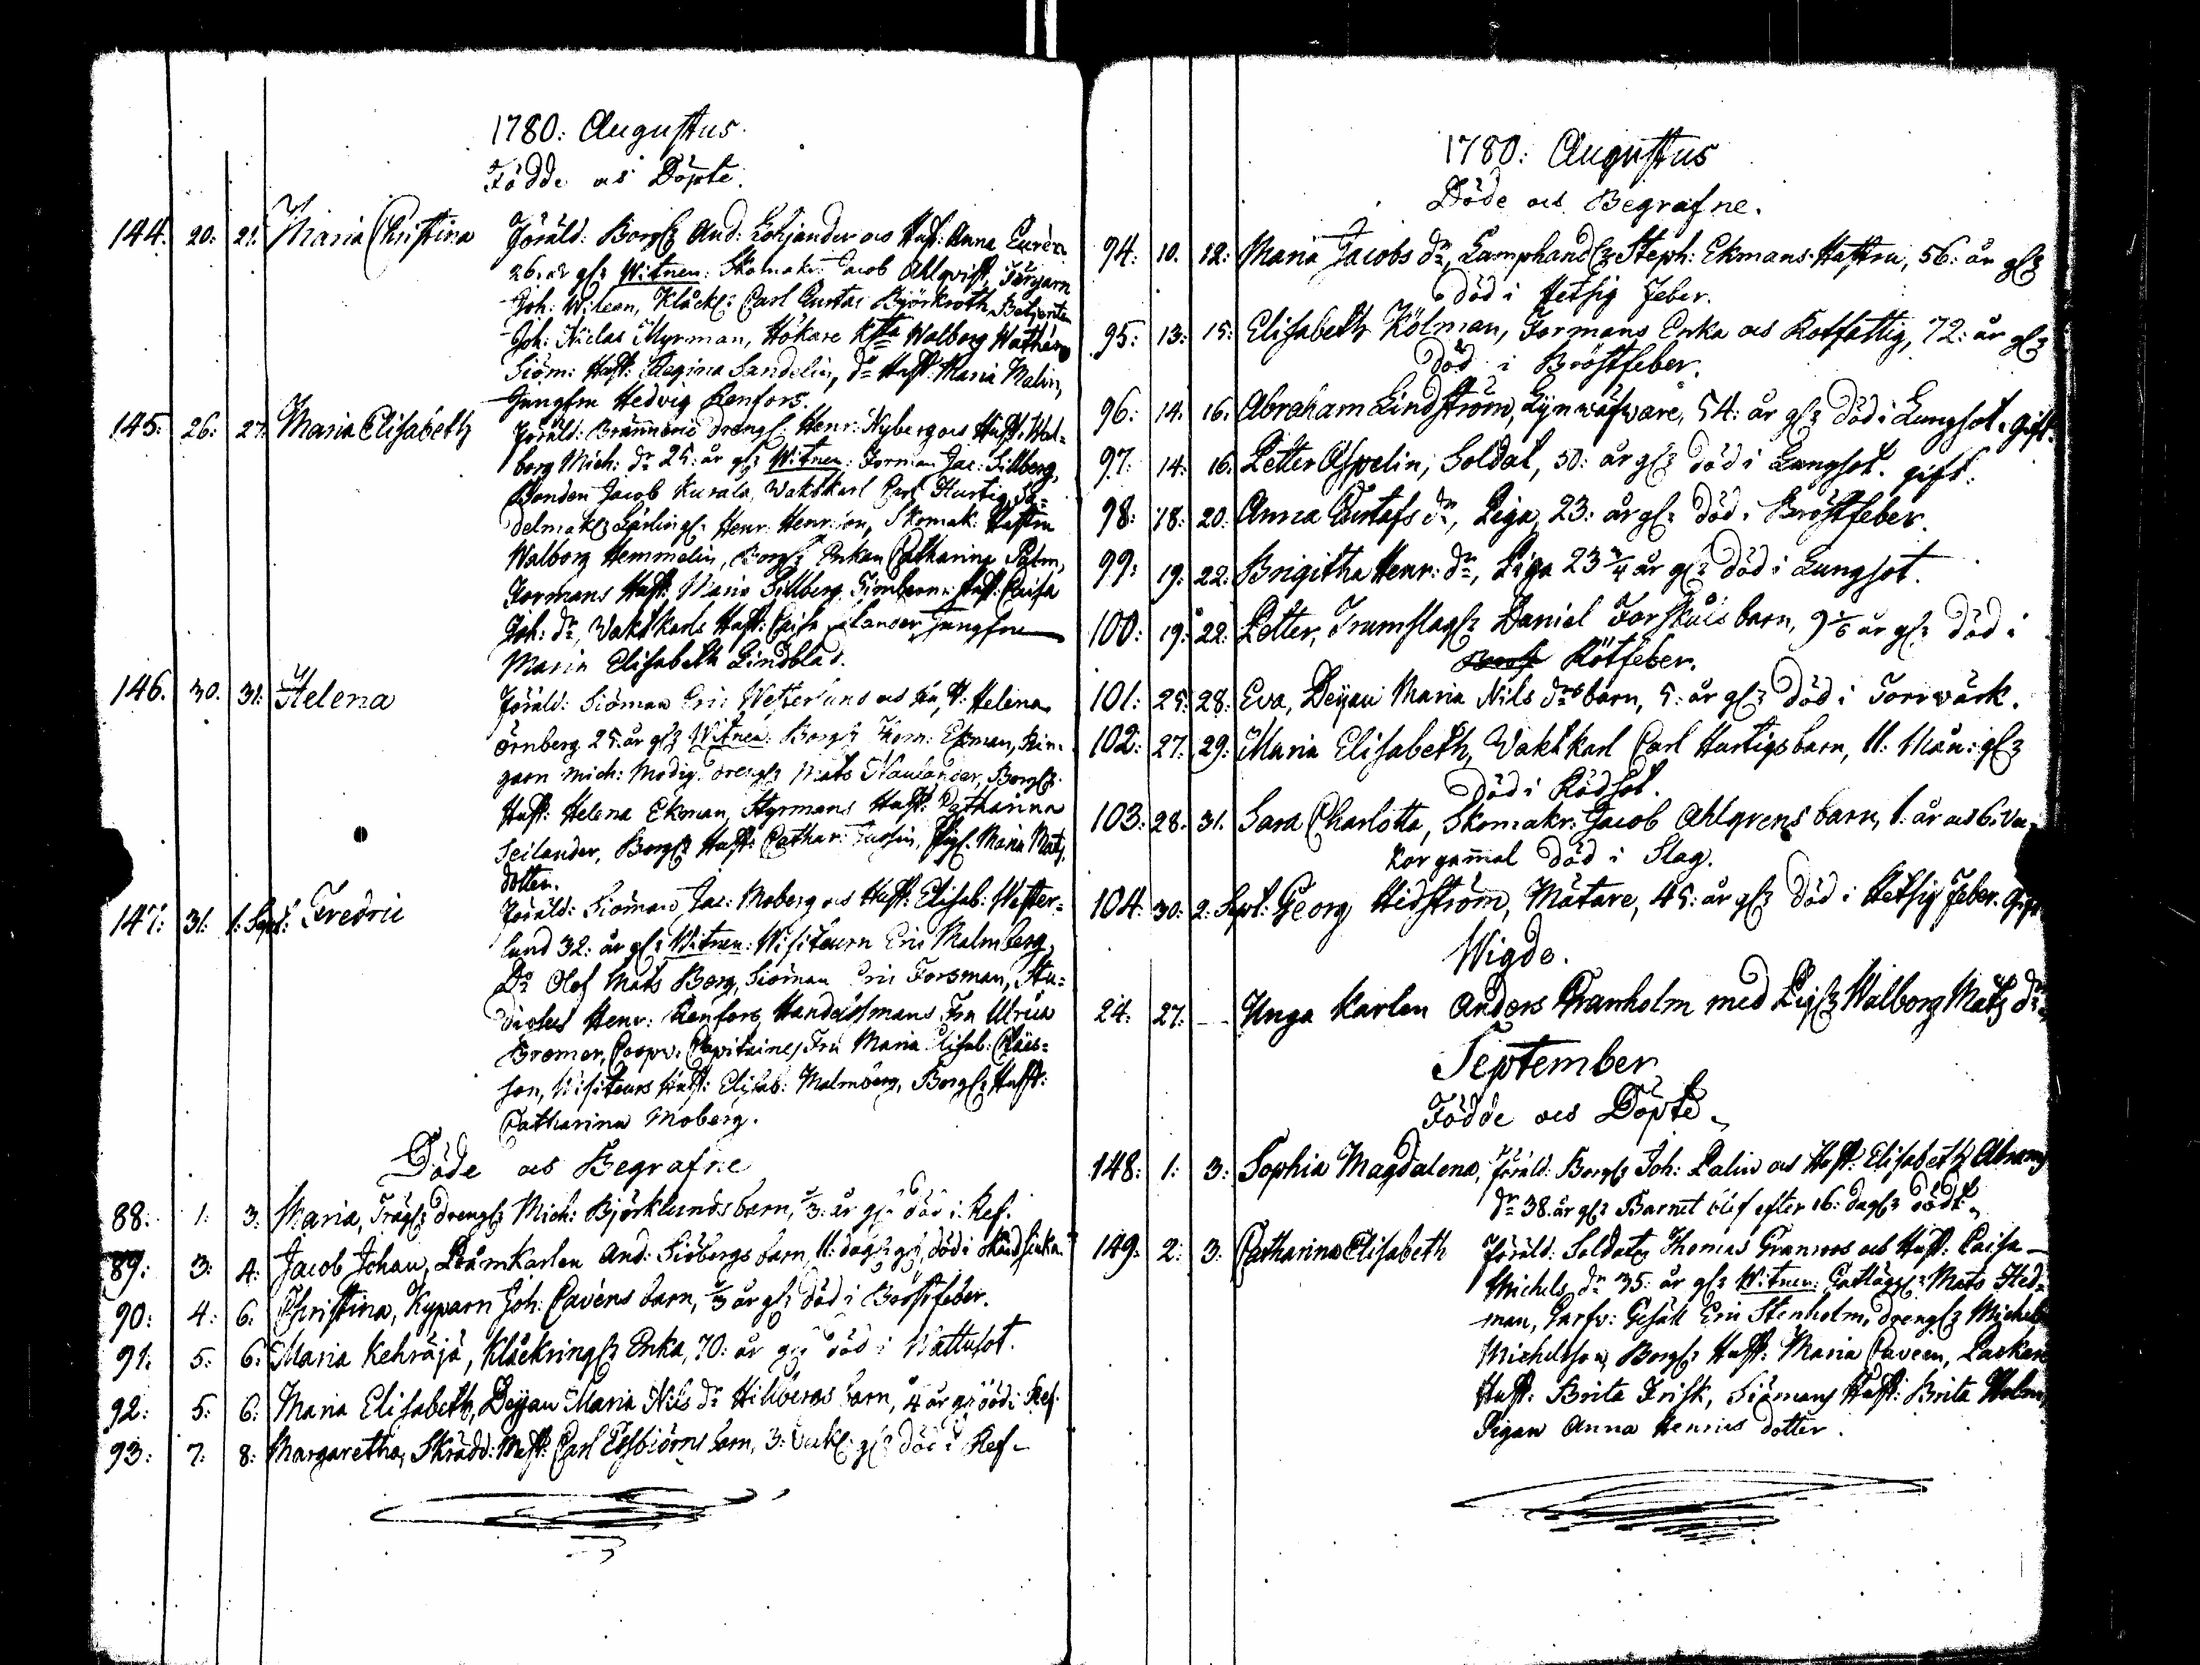 1780: Augustus.
Födde och Döpte.
144. 20: 21: Maria Christina Föräld: Borg: And: Lohjander och Hust: Anna Eurén
26. år gl: Witnen: Skomak: Jacob Ahlqvist, Färgarn
Joh: Wileen, Klåck: Carl Gustav Björkroth, Betjenten
Joh: Niclas Myrman, Hökare Walborg Wathén
Siöm: Hust: Regina Sandelin, dn Hust: Maria Malin,
Jungfru Hedvig Renfors.
145: 26: 27: Maria Elisabeth Föräld: Drengl: Henr: Nyberg och Hust: Wal-
borg Mich: dr 25: år gl: Witnen: Forman Jac: Sillberg,
Bonden Jacob Kurala, Vaktkarl Carl Hurtig, Sa-
delmak: Lärling: Henr: Henr:son, Skomak: Hustru
Walborg Hemmelin, Borg: Enkan Catharina Palm,
Formans Hust: Maria Sillberg, Hust: Caisa
Joh: dr, Vaktkarls Hust: Caisa Jungfru
Maria Elisabeth Lindblad.
146. 30. 31: Helena Föräld: Siöman Eric Westerlund och Helena
Örnberg 25: år gl: Witnen: Borg: Thom: Ekman,
Mich: Modig, Drengl: Mats Borg:
Hust: Helena Ekman, Styrmans Hust: Catharina
Seilander, Borg: Hust: Cathar: Pig: Maria Mats
dotter.
147: 31: 1: Sept: Fredric Föräld: Siöman Jac: Moberg och Hust: Elisab: Wester-
lund 32: år gl: Witnen: Wisiteurn Eric Malmberg,
Do Olof Mats Berg, Siöman Eric Forsman, Stu-
diosus Henr: Renfors, Handelsmans Fru Ulrica
Bremer, Coopv: Capitaines Fru Maria Elisab: Claes-
son, Wisiteurs Hust: Elisab: Malmberg, Borg: Hust:
Catharina Moberg.
Döde och Begrafne
88: 1: 3: Maria, Träg: drengl: Mich: Björklunds barn, år gl: död i Ref.
89: 3: 4: Jacob Johan, Bomkarlen And: Siöbergs barn, 11: dag: gl: död i okänd siuka.
90: 4: 6: Christina, Kyparn Joh: Cavéns barn, år gl: död i Bröstfeber.
91: 5: 6: Maria Kehräjä, Klåckring: Enka, 70: år gl: död i Wattusot.
92: 5: 6: Maria Elisabeth, Deyan Maria Nils dr barn, 4 år gl: död i Ref.
93: 7: 8: Margaretha, Skrädd: Mäst: Carl Essbiörns barn, 3: Veck: gl: död i Ref.
1780: Augustus
Döde och Begrafne.
94: 10. 12: Maria Jacobs dr, Lamphand: Steph: Ekmans Hustru, 56: år gl:
död i Hetsig feber.
95: 13: 15: Elisabeth Kölman, Formans Enka och Rotfattig, 72: år gl:
död i Bröstfeber.
96: 14: 16: Abraham Lindström, Lynwäfware, 54: år gl: död i Lungsot. Gift.
97: 14: 16: Petter Aspelin, Soldat, 50: år gl: död i Lungsot. gift.
98: 18: 20: Anna Gustafs dr, Piga, 23: år gl: död i Bröstfeber.
99: 19: 22: Brigitha Henr: dr, Piga 23 3/4 år gl: död i Lungsot.
100: 19: 22: Petter, Trumslag: Daniel Forskåls barn, 9 år gl: död i
Rötfeber.
101: 25: 28: Eva, Deyan Maria Nils drs barn, 5: år gl: död i Torrwärk.
102: 27: 29: Maria Elisabeth, Vaktkarl Carl Hurtigs barn, 11: Mån: gl:
död i Rödsot.
103: 28: 31. Sara Charlotta, Skomakr: Jacob Ahlgrens barn, 1: år och 6: Vec-
kor gamal död i Slag.
104: 30: 2: Sept: Georg Hedström, Mätare, 45: år gl: död i Hetsig Feber. Gift
Wigde.
24: 27: - Unga Karlen Anders Granholm med Pig: Walborg Mats dr.
September
Födde och Döpte.
148: 1: 3: Sophia Magdalena, Föräld: Borg: Joh: Palin och Hust: Elisabeth Abrams
dr 38. år gl: Barnet blef efter 16: dag: dödt.
149: 2: 3: Catharina Elisabeth Föräld: Soldaten Thomas Granroos och Hust: Caisa
Michels dr 35: år gl: Witnen: Mats Hed-
man, Garfv: Gesäll Eric Stenholm, drengl: Michel
Michelsson, Borg: Hust: Maria Caveen, Packare
Hust: Brita Frisk, Siömans Hust: Brita Holm,
Pigan Anna Henrics dotter.